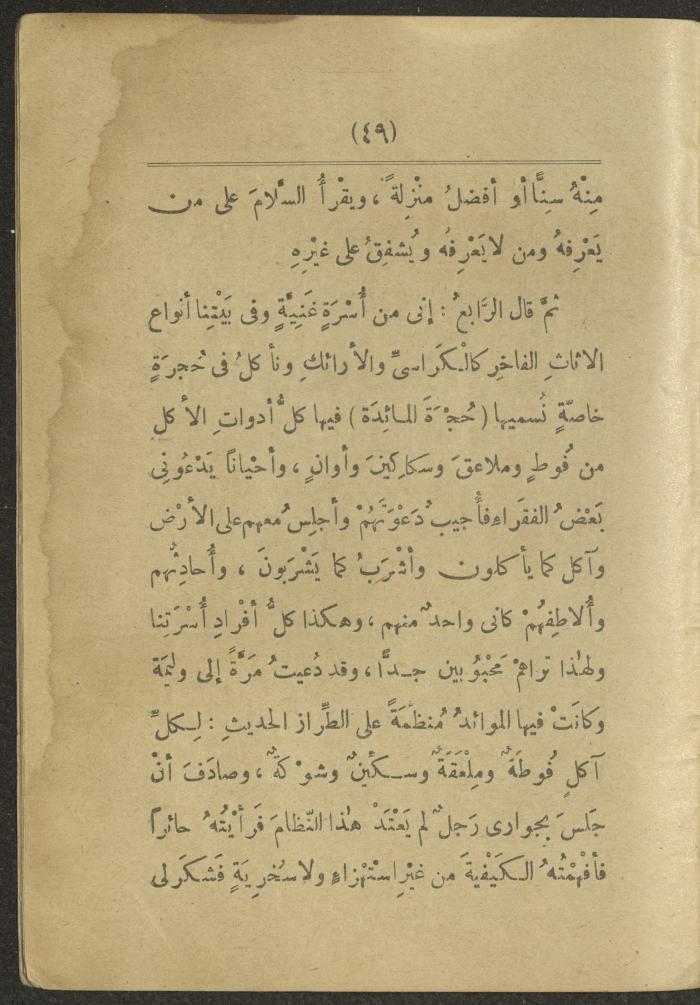 (٤٩)
مِنْهُ سِنًّا أو أفضلُ منْزِلةً ، ويقْرأُ السَّلامَ على من
يَعْرِفهُ ومن لا يَعْرِفُه ويُشفِقُ على غيْرِهِ
ثمَّ قال الرَّابعُ : إنى من أُسْرَةٍ غَنِيَّةٍ وفى بَيْتِنا أنواع
الاثاثِ الفاخِرِ كالْكَراسىِّ والأرائكِ ونأكلُ فى حُجرَةٍ
خاصّةٍ نُسميها (حُجْرَةَ المائِدَة) فيها كلُّ أدواتِ الأكل
من فُوطٍ وملاعقَ وسكاكِينَ وأوانٍ ، وأحْياناً يَدْعُونِى
بَعْضُ الفقَراءِ فأُجيبُ دَعْوَتَهُمْ وأجلِسُ معهم على الأرْض
وآكل كما يأكلون وأشْرَبُ كما يَشْرَبونَ ، وأُحادِثُهم
وأُلاطِفهُمْ كانى واحدٌ منهم ، وهكذا كلُّ أفْرادِ أُسْرَتِنا
ولهذا تراهمْ مَحْبُوبين جدًّا ، وقد دُعيتُ مَرَّةً إلى وليمَة
وكانَتْ فيها الموائدُ مُنظَمَةً على الطِّراز الحديثِ : لِكلِّ
آكلٍ فُوطَةٌ ومِلْعَقَةٌ وسكّينٌ وشوْكَةٌ ، وصادَفَ أنْ
جَلسَ بجوارى رَجلٌ لم يَعْتَدْ هذا النّظامَ فَرأيْتُهُ حائراً
فأفْهَمْتُهُ الكَيْفِيةَ من غيْرِ استْهزاءٍ ولا سُخرِيَةٍ فَشكَرَ لى